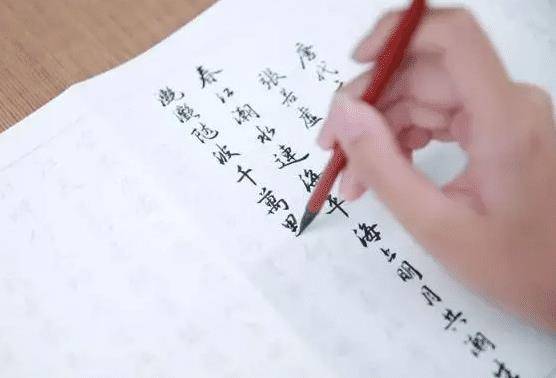 唐代
張若虚
春江潮水連海平 海上明月共潮生
灩灩随波千萬里